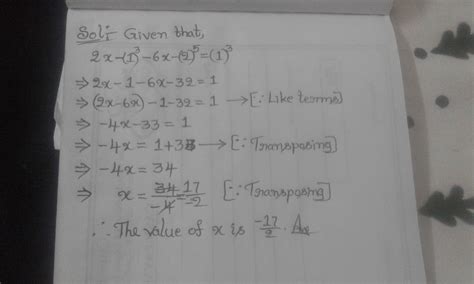 Sol:- Given that,
2x-(1)³-6x-(2)⁵=(1)³
⇒ 2x-1-6x-32=1
⇒ (2x-6x)-1-32=1 → [∵ Like terms]
⇒ -4x-33=1
⇒ -4x=1+33 → [∵ Transposing]
⇒ -4x=34
⇒ x=34/-4=17/-2 [∵ Transposing]
∴ The value of x is -17/2. Ans